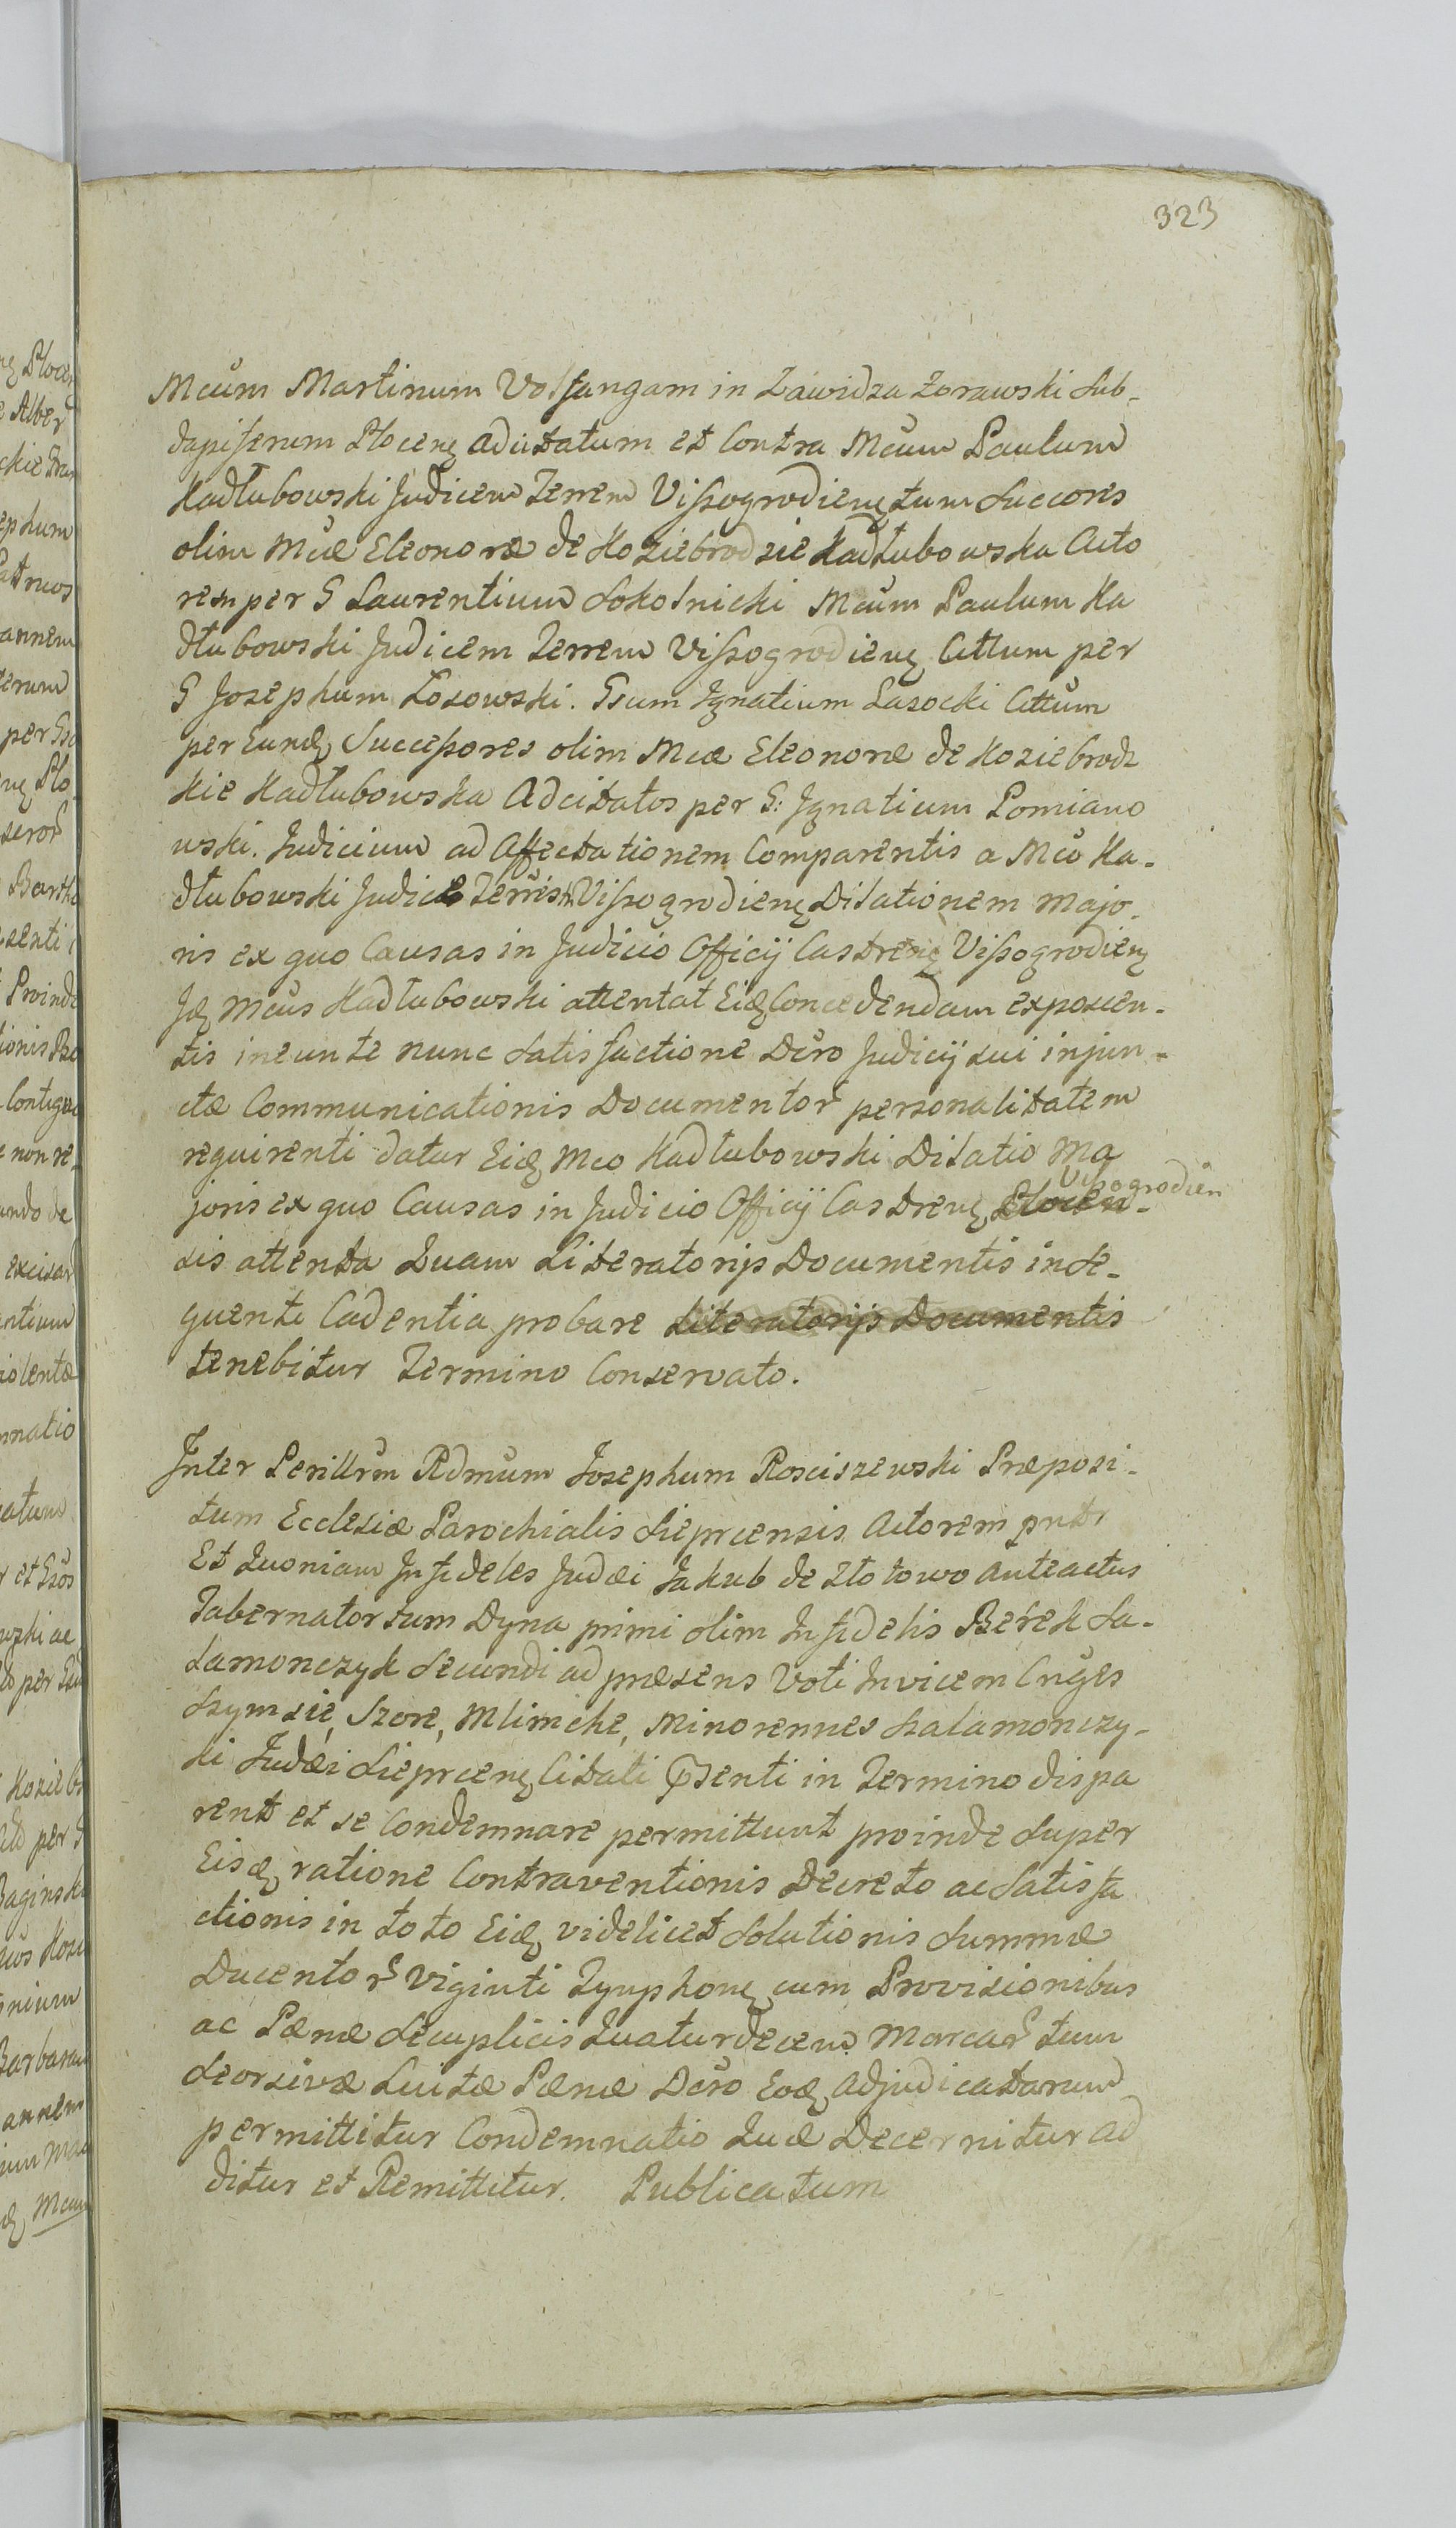 323
Mcum Martinum Volfangam in Zawidza Zorawski Sub-
dapiferum Plocen adcitatum et Contra Mcum Paulum
Kadłubowski Judicem Terrem Vissogrodien tum Succores
olim Mcæ Eleonoræ de Koziebrodzie Kadłubowska Acto
rem per G Laurentium Sokolnicki Mcum Paulum Ka
dłubowski Judicem Terrem Vissogrodien Cittum per
G Josephum Łosowski. Gsum Ignatium Lasocki Cittum
per Eund Successores olim Mcæ Eleonoræ de Koziebrodz
kie Kadłubowska Adcitatos per G: Ignatium Pomiano
wski. Judicium ad Affectationem Comparentis a Mco Ka-
dłubowski Judice Terris Vissogrodien Dilationem Majo-
ris ex quo Causas in Judicio Officij Castren Vissogrodien
Id Mcus Kadłubowski attentat Eid Concedendam exposcen-
tis ineunte nunc Satisfactione Dcro Judicij sui injun-
ctæ Communicationis Documentor personalitatem
requirenti datur Eid Mco Kadłubowski Dilatio Ma
joris ex quo Causas in Judicio Officij Castren Plocen- Vissogrodien
sis attenta Quam Literatorijs Documentis inse-
quenti Cadentia probare Literatorijs Documentis
tenebitur Termino Conservato.
Inter Perillrm Rdmum Josephum Rosciszewski Præposi-
tum Ecclesiæ Parochialis Sieprcensis Actorem pntr
Et Quoniam Infideles Judæi Jakub de Złotowo Anteactus
Tabernator tum Dyna primi olim Infidelis Berek Sa-
lamonczyk Secundi ad præsens Voti Invicem Cnges
Szymsie, Szore, Mlimche, Minorennes Szalamonczy-
ki Judæi Sieprcen Citati Absenti in Termino dispa
rent et se Condemnare permittunt proinde Super
Eisd ratione Contraventionis Decreto ac Satisfa
ctionis in toto Eid videlicet Solutionis Summæ
Ducentor Viginti Tynphon cum Provisionibus
ac Pænæ Secuplicis Quaturdecem Marcar tum
Seorsivæ Luitæ Pænæ Dcro Eod Adjudicatarum
permittitur Condemnatio Quæ Decernitur ad
ditur et Remittitur. Publicatum